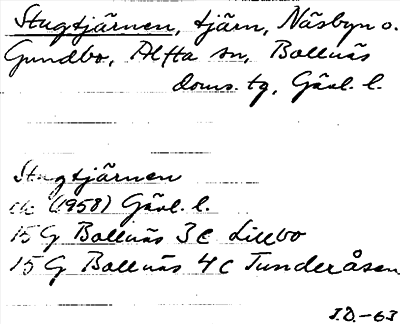 Stugtjärnen, tjärn, Näsbyn o.
Gundbo, Alfta sn, Bollnäs
doms. tg, Gävl. l.
Stugtjärnen
ek (1958) Gävl. l.
15 G Bollnäs 3 e Lillbo
15 G Bollnäs 4 c Tunderåsen
J.D.-63